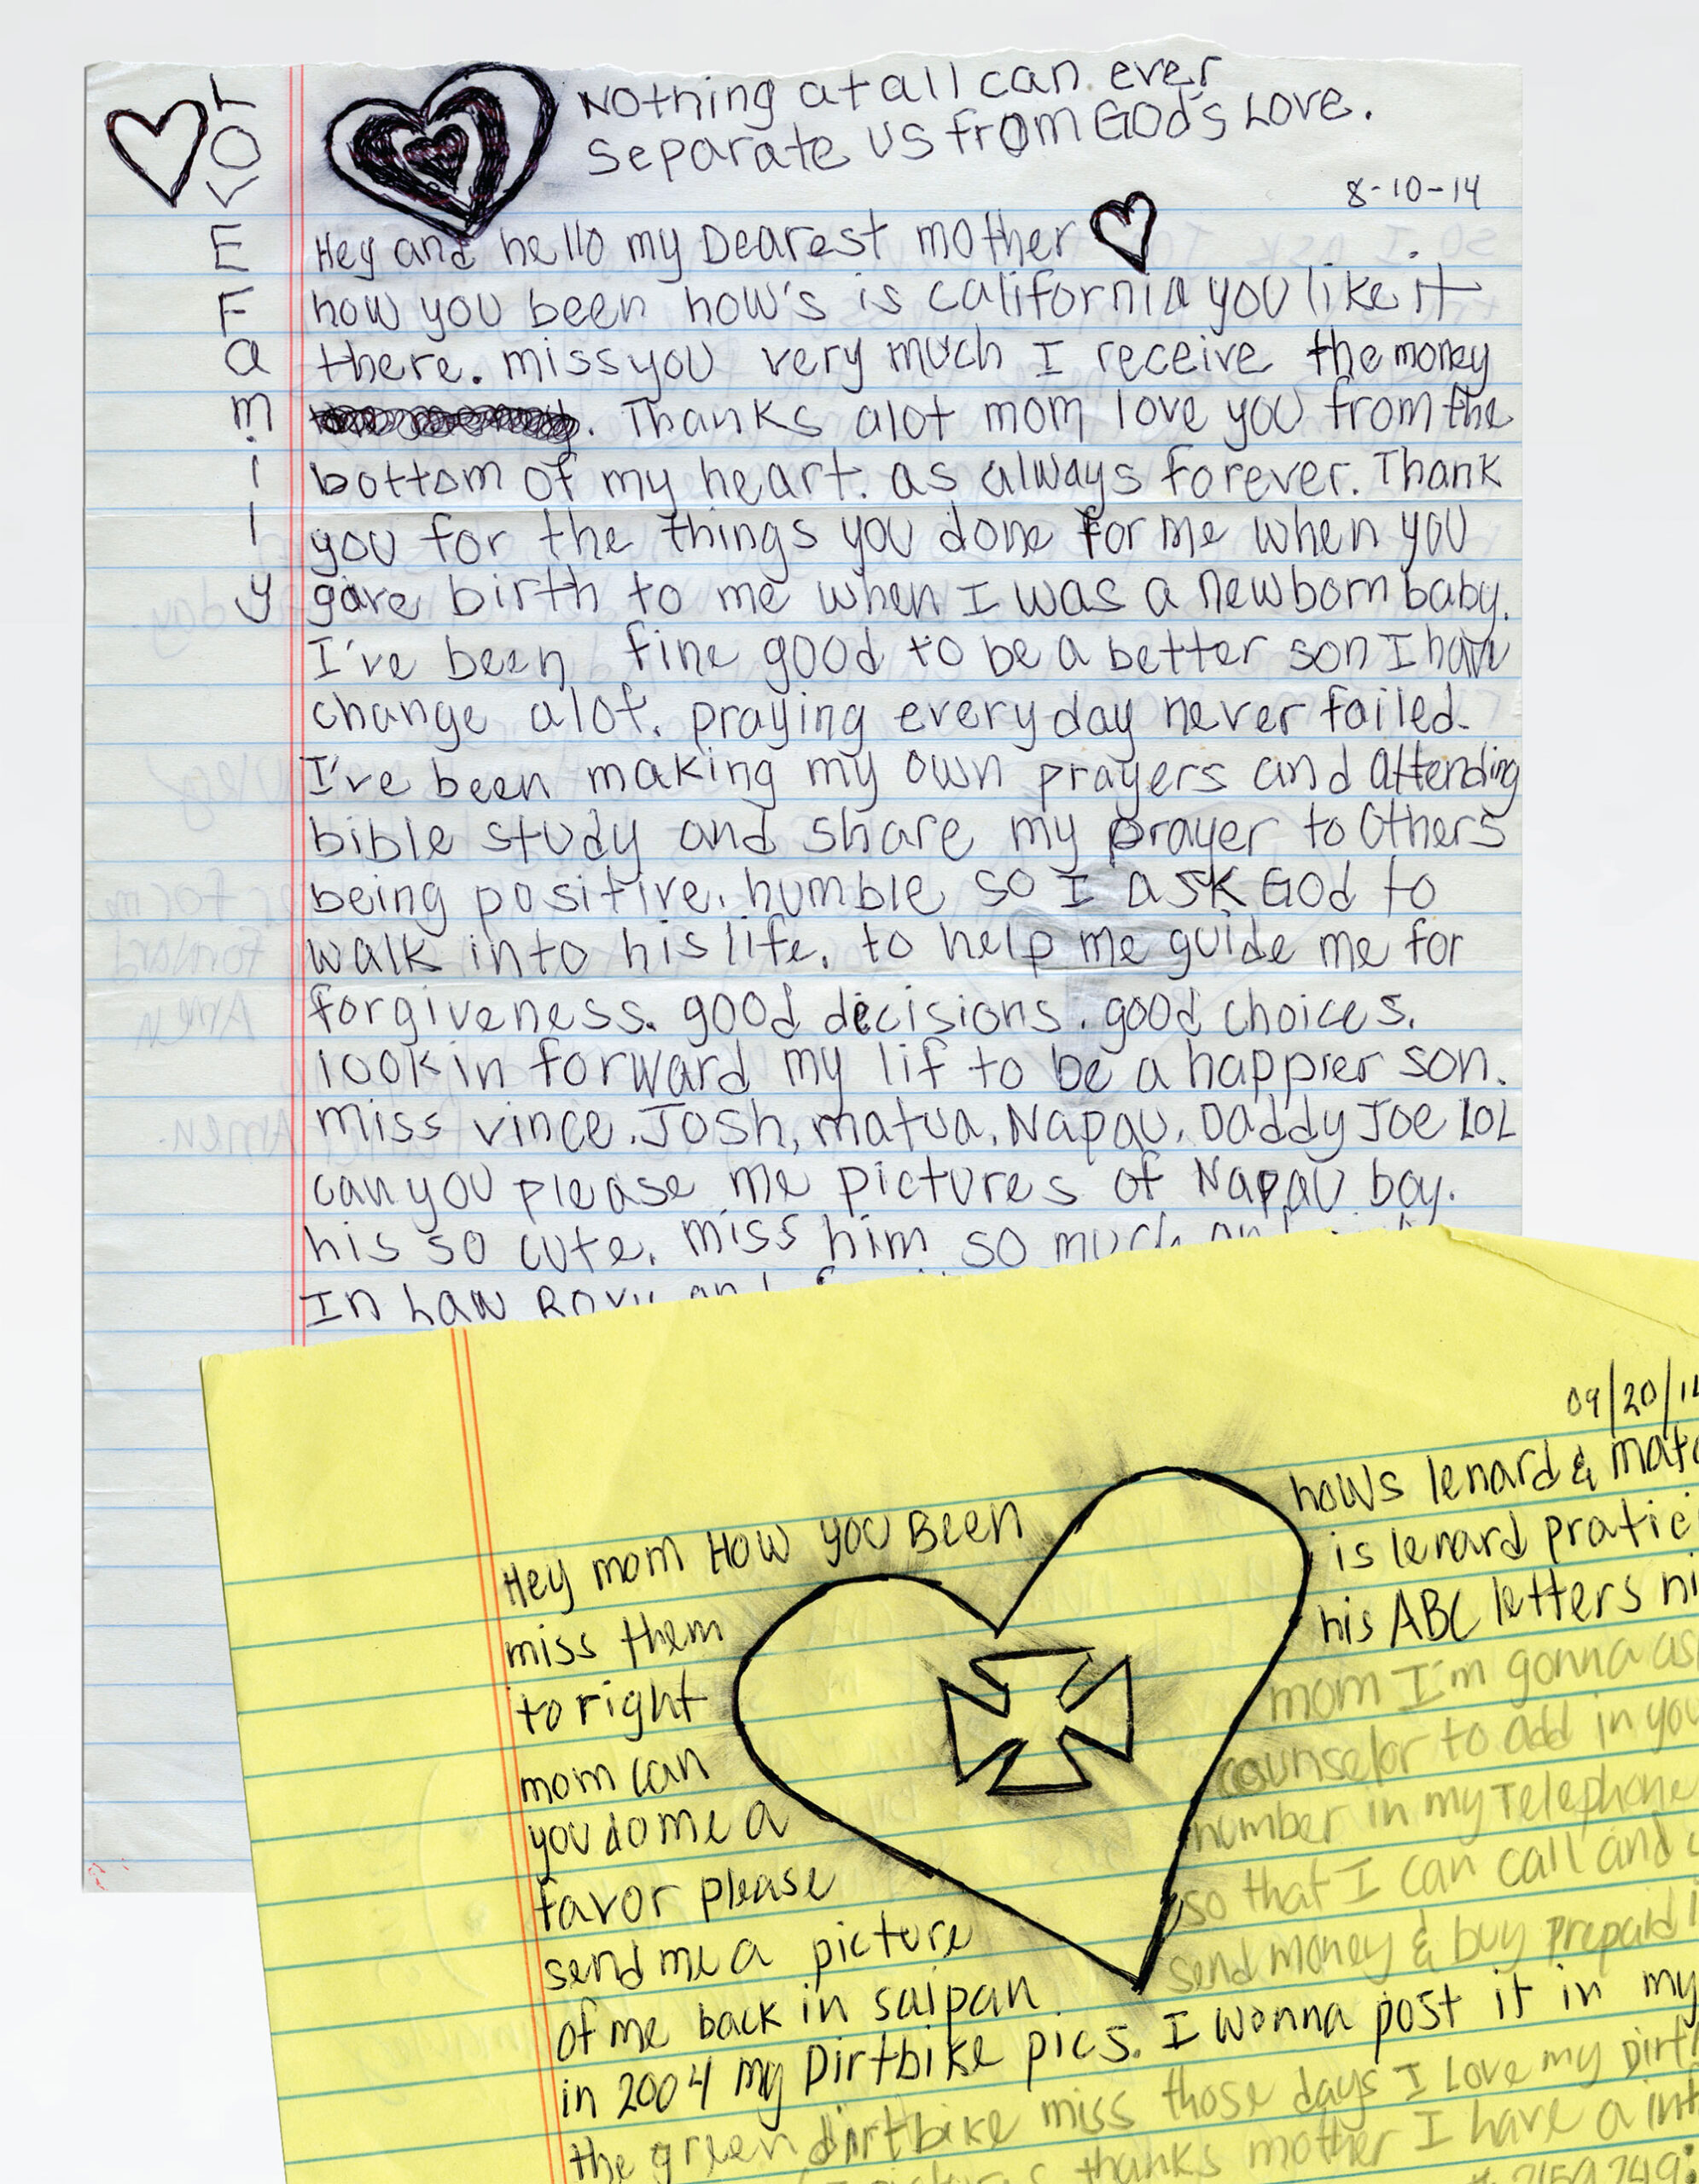 LOVE Family
Nothing at all can ever
separate us from God's Love.
8-10-14
Hey and hello my Dearest mother
how you been how's is california you like it
there. miss you very much I receive the money
. Thanks alot mom love you from the
bottom of my heart. as always forever. Thank
you for the things you done for me when you
gave birth to me when I was a newborn baby.
I've been fine good to be a better son I have
change alot. praying everyday never failed.
I've been making my own prayers and attending
bible study and share my prayer to others
being positive. humble so I ask God to
walk into his life. to help me guide me for
forgiveness. good decisions. good choices.
look in forward my lif to be a happier son.
miss vince. Josh, matua. Napau. Daddy Joe LOL
can you please me pictures of Napau boy.
his so cute. miss him so much and
In Law Roxy and
09/20/1
Hey mom How you Been
hows lenard &
is lenard
his ABC letters
miss them
to right
mom can
you do me a
favor please
send me a picture
of me back in saipan
in 2004 my Dirtbike pics. I wonna post it in my
mom I'm gonna
counselor to add in
number in my Telephone
so that I can call and
send money & buy prepaid
the green dirtbike miss those days I Love my
thanks mother I have a